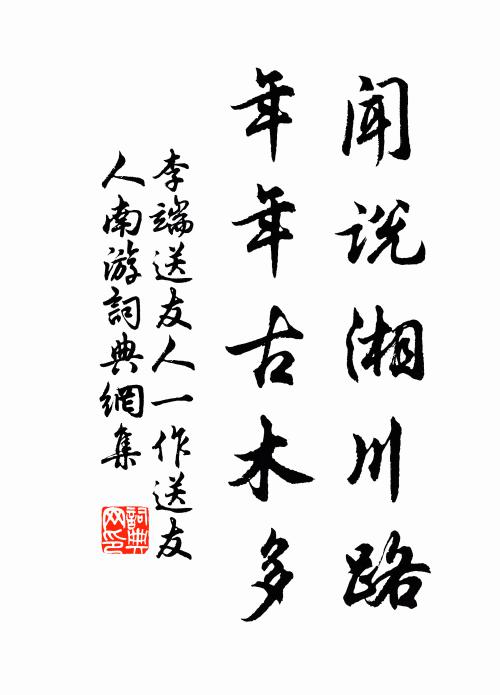 聞説湘川路
年年古木多
李端送友人一作送友
人南游詞典網集
詞典网印